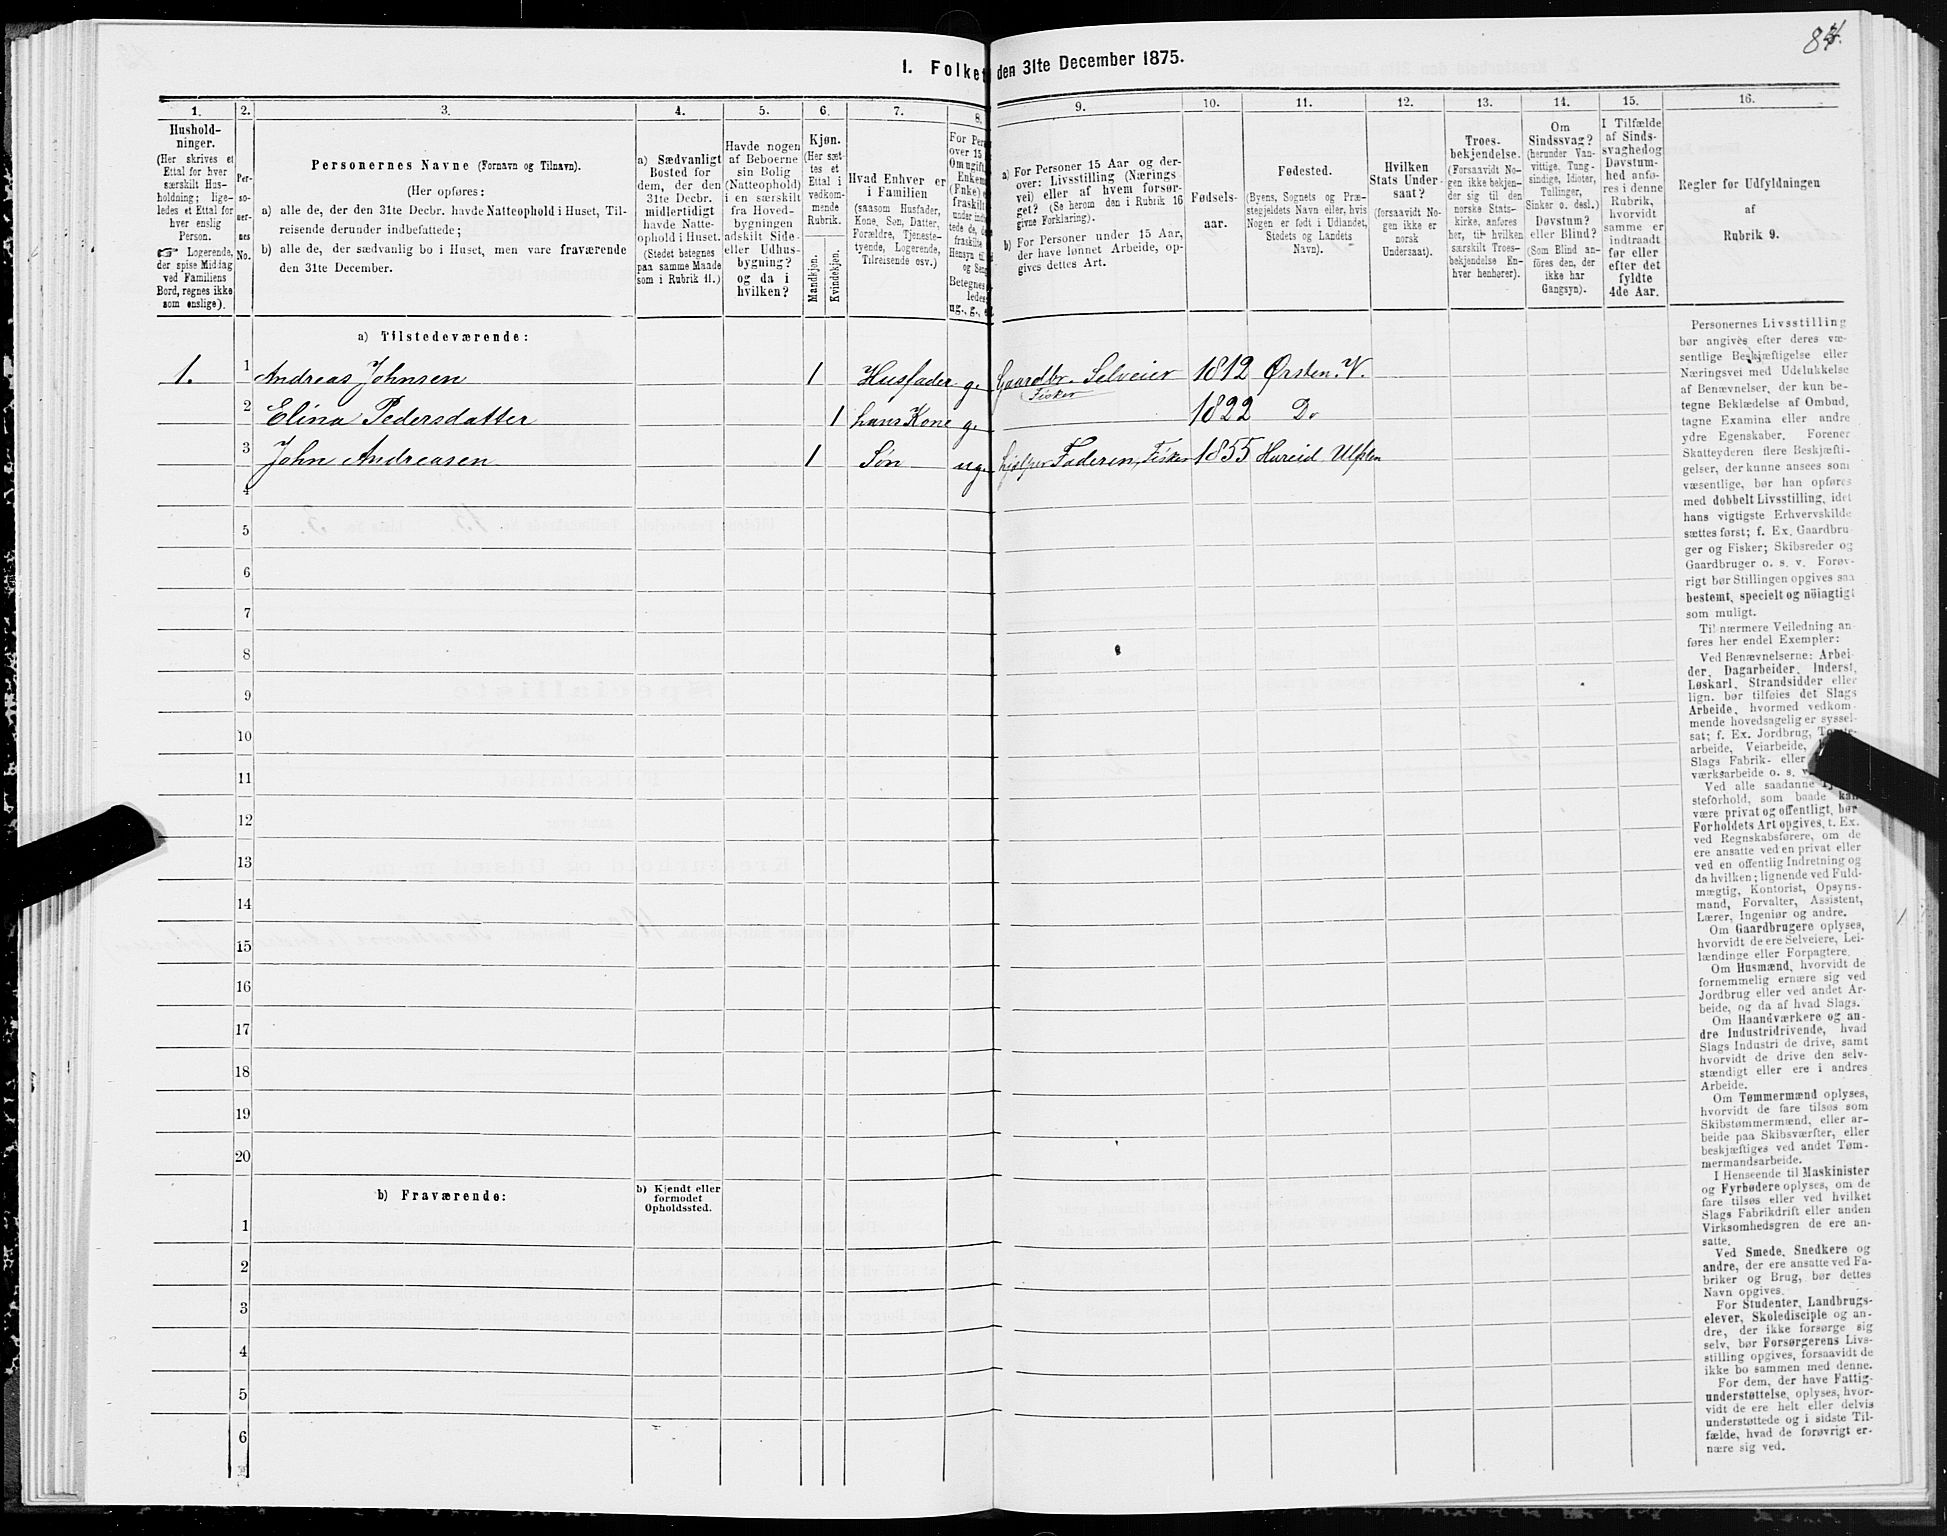 84.
1. Folket
den 31te December 1875.
1. 2. 3. 4. 5. 6. 7. 8. 9. 10. 11. 12. 13. 14. 15. 16.
Hushold-
ninger.
(Her skrives et
Ettal for hver
særskilt Hus-
holdning; lige-
ledes et Ettal for
hver enslig
Person.
☞ Logerende,
der spise Middag
ved Familiens
Bord, regnes ikke
som enslige).
Per-
soner-
nes
No.
Personernes Navne (Fornavn og Tilnavn).
(Her opføres:
a) alle de, der den 31te Decbr. havde Natteophold i Huset, Til-
reisende derunder indbefattede;
b) alle de, der sædvanlig bo i Huset, men vare fraværende
den 31te December.
a) Sædvanligt
Bosted for
dem, der den
31te Decbr.
midlertidigt
havde Natte-
ophold i Huset.
(Stedet betegnes
paa samme Maade
som i Rubrik 11.)
Havde nogen
af Beboerne
sin Bolig
(Natteophold)
i en særskilt
fra Hoved-
bygningen
adskilt Side-
eller Udhus-
bygning?
og da i
hvilken?
Kjøn.
(Her sæt-
tes et
Ettal i
vedkom-
mende
Rubrik.
Mandkjøn.
Kvindekjøn.
Hvad Enhver er
i Familien
(saasom Husfader,
Kone, Søn, Datter,
Forældre, Tjeneste-
tyende, Logerende,
Tilreisende osv.)
For Per
over 15
Om ugift
Enkem
(Enke) e
fraskilt
under ind
tede de, d
fraskilte
Hensyn til
og Sen
Betegnes
ledes
ug., g., e
a) For Personer 15 Aar og der-
over: Livsstilling (Nærings
vei) eller af hvem forsør-
get? (Se herom den i Rubrik 16
givne Forklaring).
b) For Personer under 15 Aar,
der have lønnet Arbeide, op-
gives dettes Art.
Fødsels-
aar.
Fødested.
(Byens, Sognets og Præ-
stegjeldets Navn eller, hvis
Nogen er født i Udlandet,
Stedets og Landets
Navn).
Hvilken
Stats Under-
saat?
(forsaavidt No-
gen ikke er
norsk
Undersaat).
Troes-
bekjendelse.
(Forsaavidt No-
gen ikke bekjen-
der sig til den
norske Stats-
kirke, anføres
her, til hvilken
særskilt Troes-
bekjendelse En-
hver henhører).
Om
Sindssvag?
(herunder Van-
vittige, Tung-
sindige, Idioter,
Tullinger,
Sinker o. desl.)
Døvstum?
eller Blind?
(Som Blind an-
føres den, der
ikke har
Gangsyn).
I Tilfælde
af Sinds-
svaghed og
Døvstum-
hed anfø-
res i denne
Rubrik,
hvorvidt
samme er
indtraadt
før eller
efter det
fyldte
4de Aar.
Regler for Udfyldningen
af
Rubrik 9.
a) Tilstedeværende:
1. 1 Andreas Johnsen 1 Husfader g. Gaardbr. Selveier 1812 Ørsten. V.
Fisker
2 Elina Pedersdatter 1 hans Kone g. 1822 Do
3 John Andreasen 1 Søn ug. hjelper Faderen, Fisker 1855 Hareid Ulften
4
5
6
7
8
9
10
11
12
13
14
15
16
17
18
19
20
b) Fraværende:
b) Kjendt eller
formodet
Opholdssted.
1
2
3
4
5
6
Personernes Livsstilling
bør angives efter deres væ-
sentlige Beskjæftigelse eller
Næringsvei med Udelukkelse
af Benævnelser, der kun be-
tegne Beklædelse af Ombud,
tagne Examina eller andre
ydre Egenskaber. Forener
Skatteyderen flere Beskjæfti-
gelser, der kunne ansees som
væsentlige, bør han opføres
med dobbelt Livsstilling, idet
hans vigtigste Erhvervskilde
sættes først; f. Ex. Gaardbru-
ger og Fisker; Skibsreder og
Gaardbruger o. s. v. Forøv-
rigt bør Stillingen opgives saa
bestemt, specielt og nöiagtigt
som muligt.
Til nærmere Veiledning an-
føres her endel Exempler:
Ved Benævnelserne: Arbei-
der, Dagarbeider, Inderst,
Løskarl, Strandsidder eller
lign. bør tilføies det Slags
Arbeide, hvormed vedkom-
mende hovedsagelig er syssel-
sat; f. Ex. Jordbrug, Tomte-
arbeide, Veiarbeide,
Slags Fabrik- eller
værksarbeide o. s. v.
Ved alle saadanne
steforhold, som baade kan
være privat og offentligt, bør
Forholdets Art opgives, t. Ex.
ved Regnskabsførere, om de
ere ansatte ved en privat eller
ved en offentlig Indretning og
da hvilken; lignende ved Fuld-
mægtig, Kontorist, Opsyns-
mand, Forvalter, Assistent,
Lærer, Ingeniør og andre.
Om Gaardbrugere oplyses,
hvorvidt de ere Selveiere, Lei-
lændinge eller Forpagtere.
Om Husmænd, hvorvidt de
fornemmelig ernære sig ved
Jordbrug eller ved andet Ar-
beide, og da af hvad Slags.
Om Haandværkere og an-
dre Industridrivende, hvad
Slags Industri de drive, samt
hvorvidt de drive den selv-
stændigt eller ere i andres
Arbeide.
Om Tømmermænd oplyses,
hvorvidt de fare tilsøs som
Skibstømmermænd, eller ar-
beide paa Skibsværfter, eller
beskjæftiges ved andet Tøm-
mermandsarbeide.
I Henseende til Maskinister
og Fyrbødere oplyses, om de
fare tilsøs eller ved hvilket
Slags Fabrikdrift eller anden
Virksomhedsgren de ere an-
satte.
Ved Smede, Snedkere og
andre, der ere ansatte ved Fa-
briker og Brug, bør dettes
Navn opgives.
For Studenter, Landbrugs-
elever, Skoledisciple og an-
dre, der ikke forsørge sig
selv, bør Forsørgerens Livs-
stilling opgives, forsaavidt de
ikke bo sammen med denne.
For dem, der have Fattig-
understøttelse, oplyses, hvor-
vidt de ere helt eller delvis
understøttede og i sidste Til-
fælde, hvad de forøvrigt er-
nære sig ved.